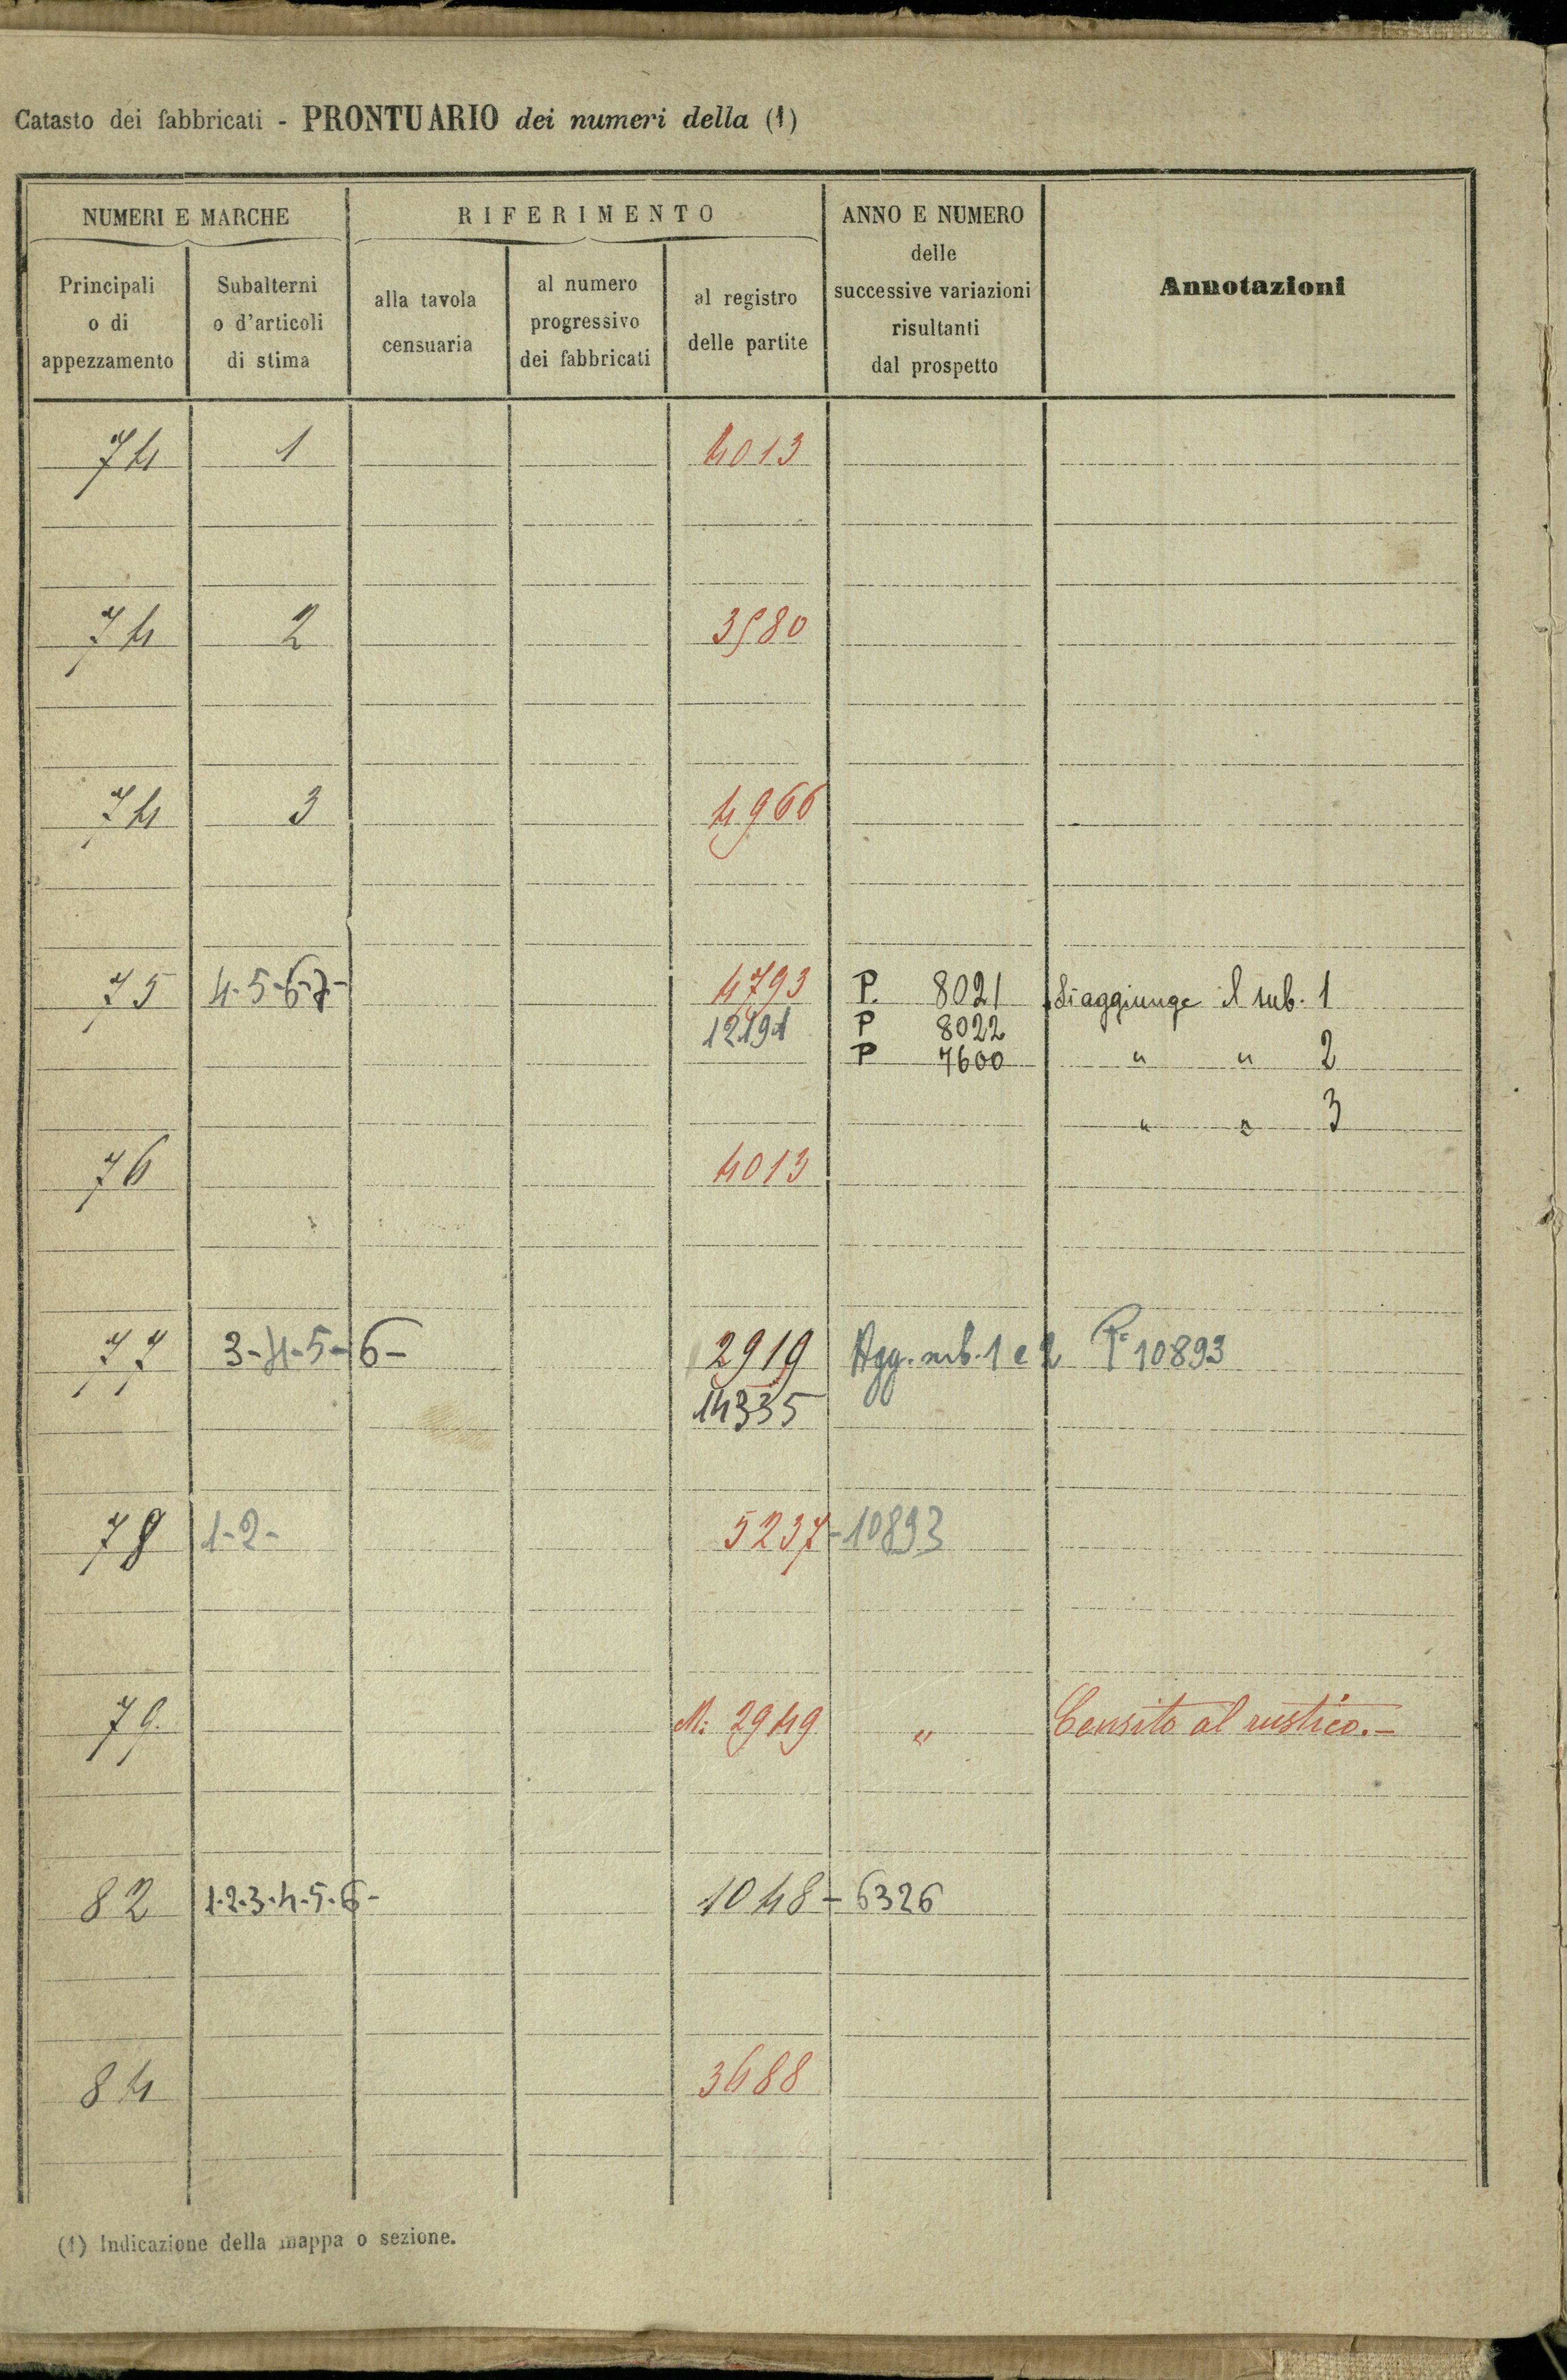 Catasto dei fabbricati - PRONTUARIO dei numeri della (1)
NUMERI E MARCHE
RIFERIMENTO
ANNO E NUMERO
delle
successive variazioni
risultanti
dal prospetto
Annotazioni
Principali
o di
appezzamento
Subalterni
o d'articoli
di stima
alla tavola
censuaria
al numero
progressivo
dei fabbricati
al registro
delle partite
74 1 4013
74 2 3580
74 3 4966
75 4-5-6-7- 4793 P. 8021 Si aggiunge il sub. 1
12191 P 8022
P 7600 " " 2
" " 3
76 4013
77 3-4-5-6- 2919 Agg. sub. 1 e 2 P. 10893
14335
78 1-2- 5237-10893
79. M: 2949 " Censito al rustico.-
82 1-2-3-4-5-6- 1048-6326
84 3688
(1) Indicazione della mappa o sezione.